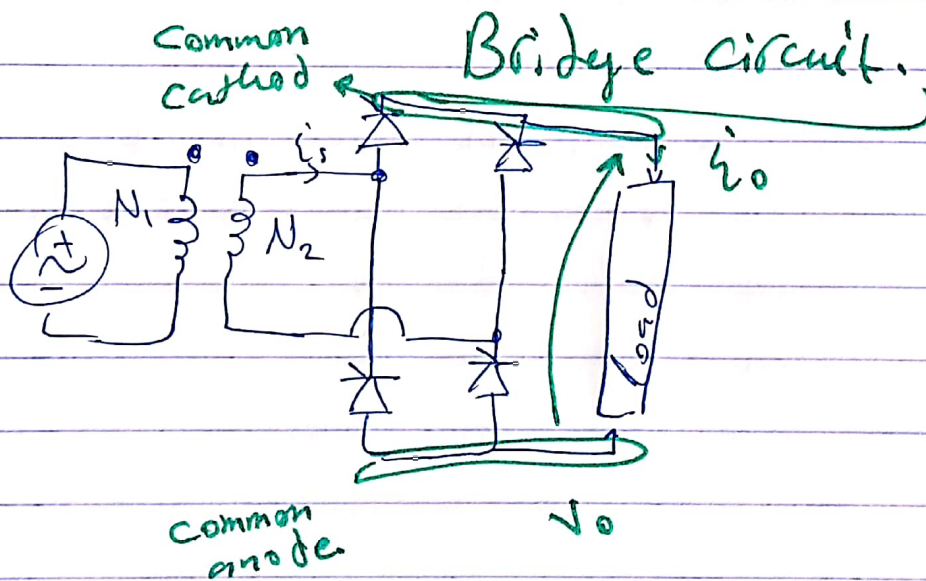 Common
cathod
Bridge circuit.
is
io
N1
N2
Load
common
anode.
Vo